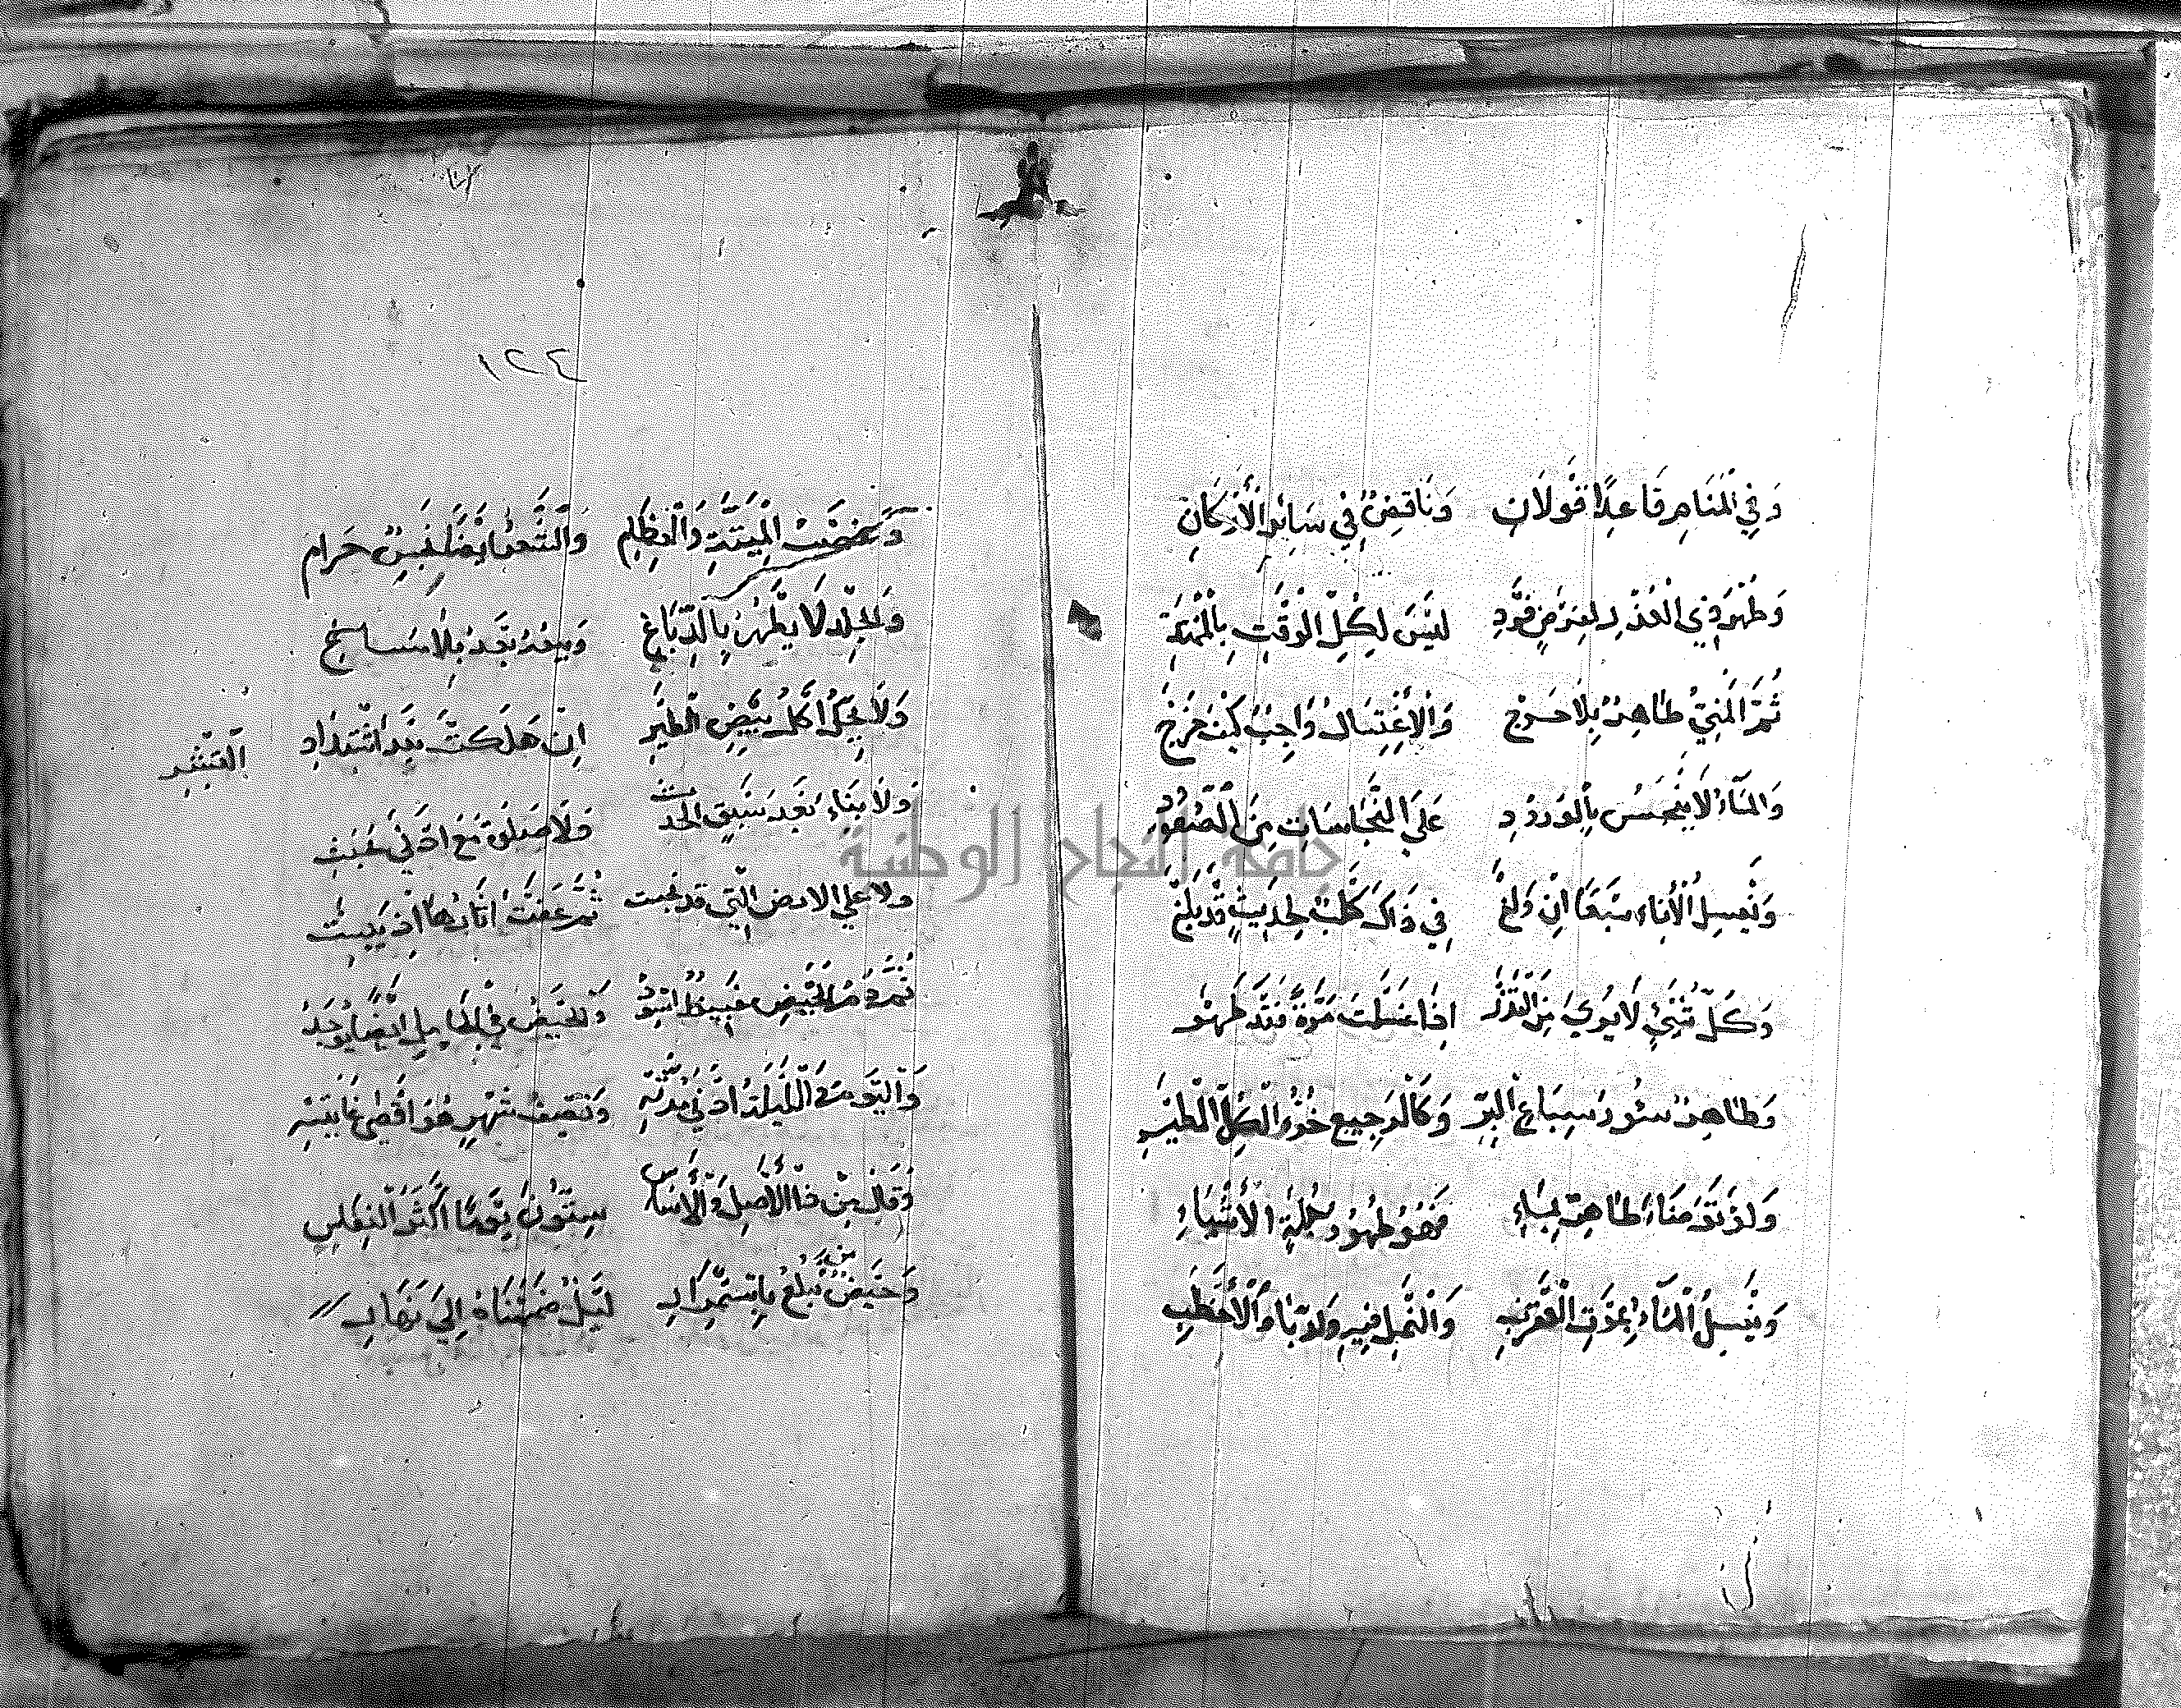 وَفِي الْمَنَامِ قَاعِدًا قَوْلَانِ وَنَاقِضٌ فِي سَائِرِ الْأَرْكَانِ
وَطُهْرُ ذِي الْعُذْرِ لِفَرْضٍ فَرْدِ لَيْسَ لِكُلِّ الْوَقْتِ
ثُمَّ الْمَنِيُّ طَاهِرٌ بِلَا حَرَجْ وَالْاِغْتِسَالُ وَاجِبٌ كَيْفَ خَرَجْ
وَالْمَاءُ لَا يَنْجُسُ بِالْوُرُودِ عَلَى النَّجَاسَاتِ مِنَ الصُّعُودِ
وَنَغْسِلُ الْأِنَاءَ سَبْعًا إِنْ وَلَغْ فِي ذَاكَ كَلْبٌ لِحَدِيثٍ قَدْ بَلَغْ
وَكُلُّ شَيْءٍ لَا يُرَى مِنَ الْقَذَرْ إِذَا غَسَلْتَ مَرَّةً فَقَدْ طَهُرْ
وَطَاهِرٌ سُؤْرُ سِبَاعِ الْبَرِّ وَكَالرَّجِيعِ خُرْءُ كُلِّ الطَّيْرِ
وَلَوْ تَوَضَّأَ طَاهِرٌ بِمَاءِ فَهُوَ طَهُورُ جُمْلَةِ الْأَشْيَاءِ
وَيَنْجُسُ الْمَاءُ بِمَوْتِ الْعَقْرَبِ وَالنَّحْلِ فِيهِ وَذُبَابٍ
١٢٤
الْمَيْتَةِ وَالْعِظَامِ وَالشَّعْرُ أَيْضًا نَجِسٌ حَرَام
وَالْجِلْدُ لَا يَطْهُرُ بِالدِّبَاغِ وَبَيْعُهُ بَعْدُ بِلَا مَسَاغِ
وَلَا يَحِلُّ أَكْلُ بَيْضِ الطَّيْرِ إِنْ هَلَكَتْ بَعْدَ اشْتِدَادِ الْقِشْرِ
وَلَا بِنَاءَ بَعْدَ سَبْقِ الْحَدَثِ وَلَا صَلَوةَ مَعَ أَدْنَى خَبَثِ
وَلَا عَلَى الْأَرْضِ الَّتِي قَدْ نَجِسَتْ ثُمَّ عَفَتْ آثَارُهَا إِذْ يَبِسَتْ
ثُمَّ دَمُ الْحَيْضِ عَبِيطٌ أَسْوَدُ وَالْحَيْضُ فِي الْحَامِلِ أَيْضًا يُوجَدُ
وَالْيَوْمُ وَاللَّيْلَةُ أَدْنَى مُدَّتِهْ وَنِصْفُ شَهْرٍ هُوَ أَقْصَى غَايَتِهْ
وَقَالَ مَنْ ذَا الْأَصْلُ وَالْأَسَاسِ سِتُّونَ يَوْمًا أَكْثَرُ النِّفَاسِ
وَحَيْضُ مَنْ تَبْلُغُ بِاسْتِمْرَارِ لَيْلٌ ضَمَمْنَاهُ إِلَى نَهَارِ
جامعة النجاح الوطنية